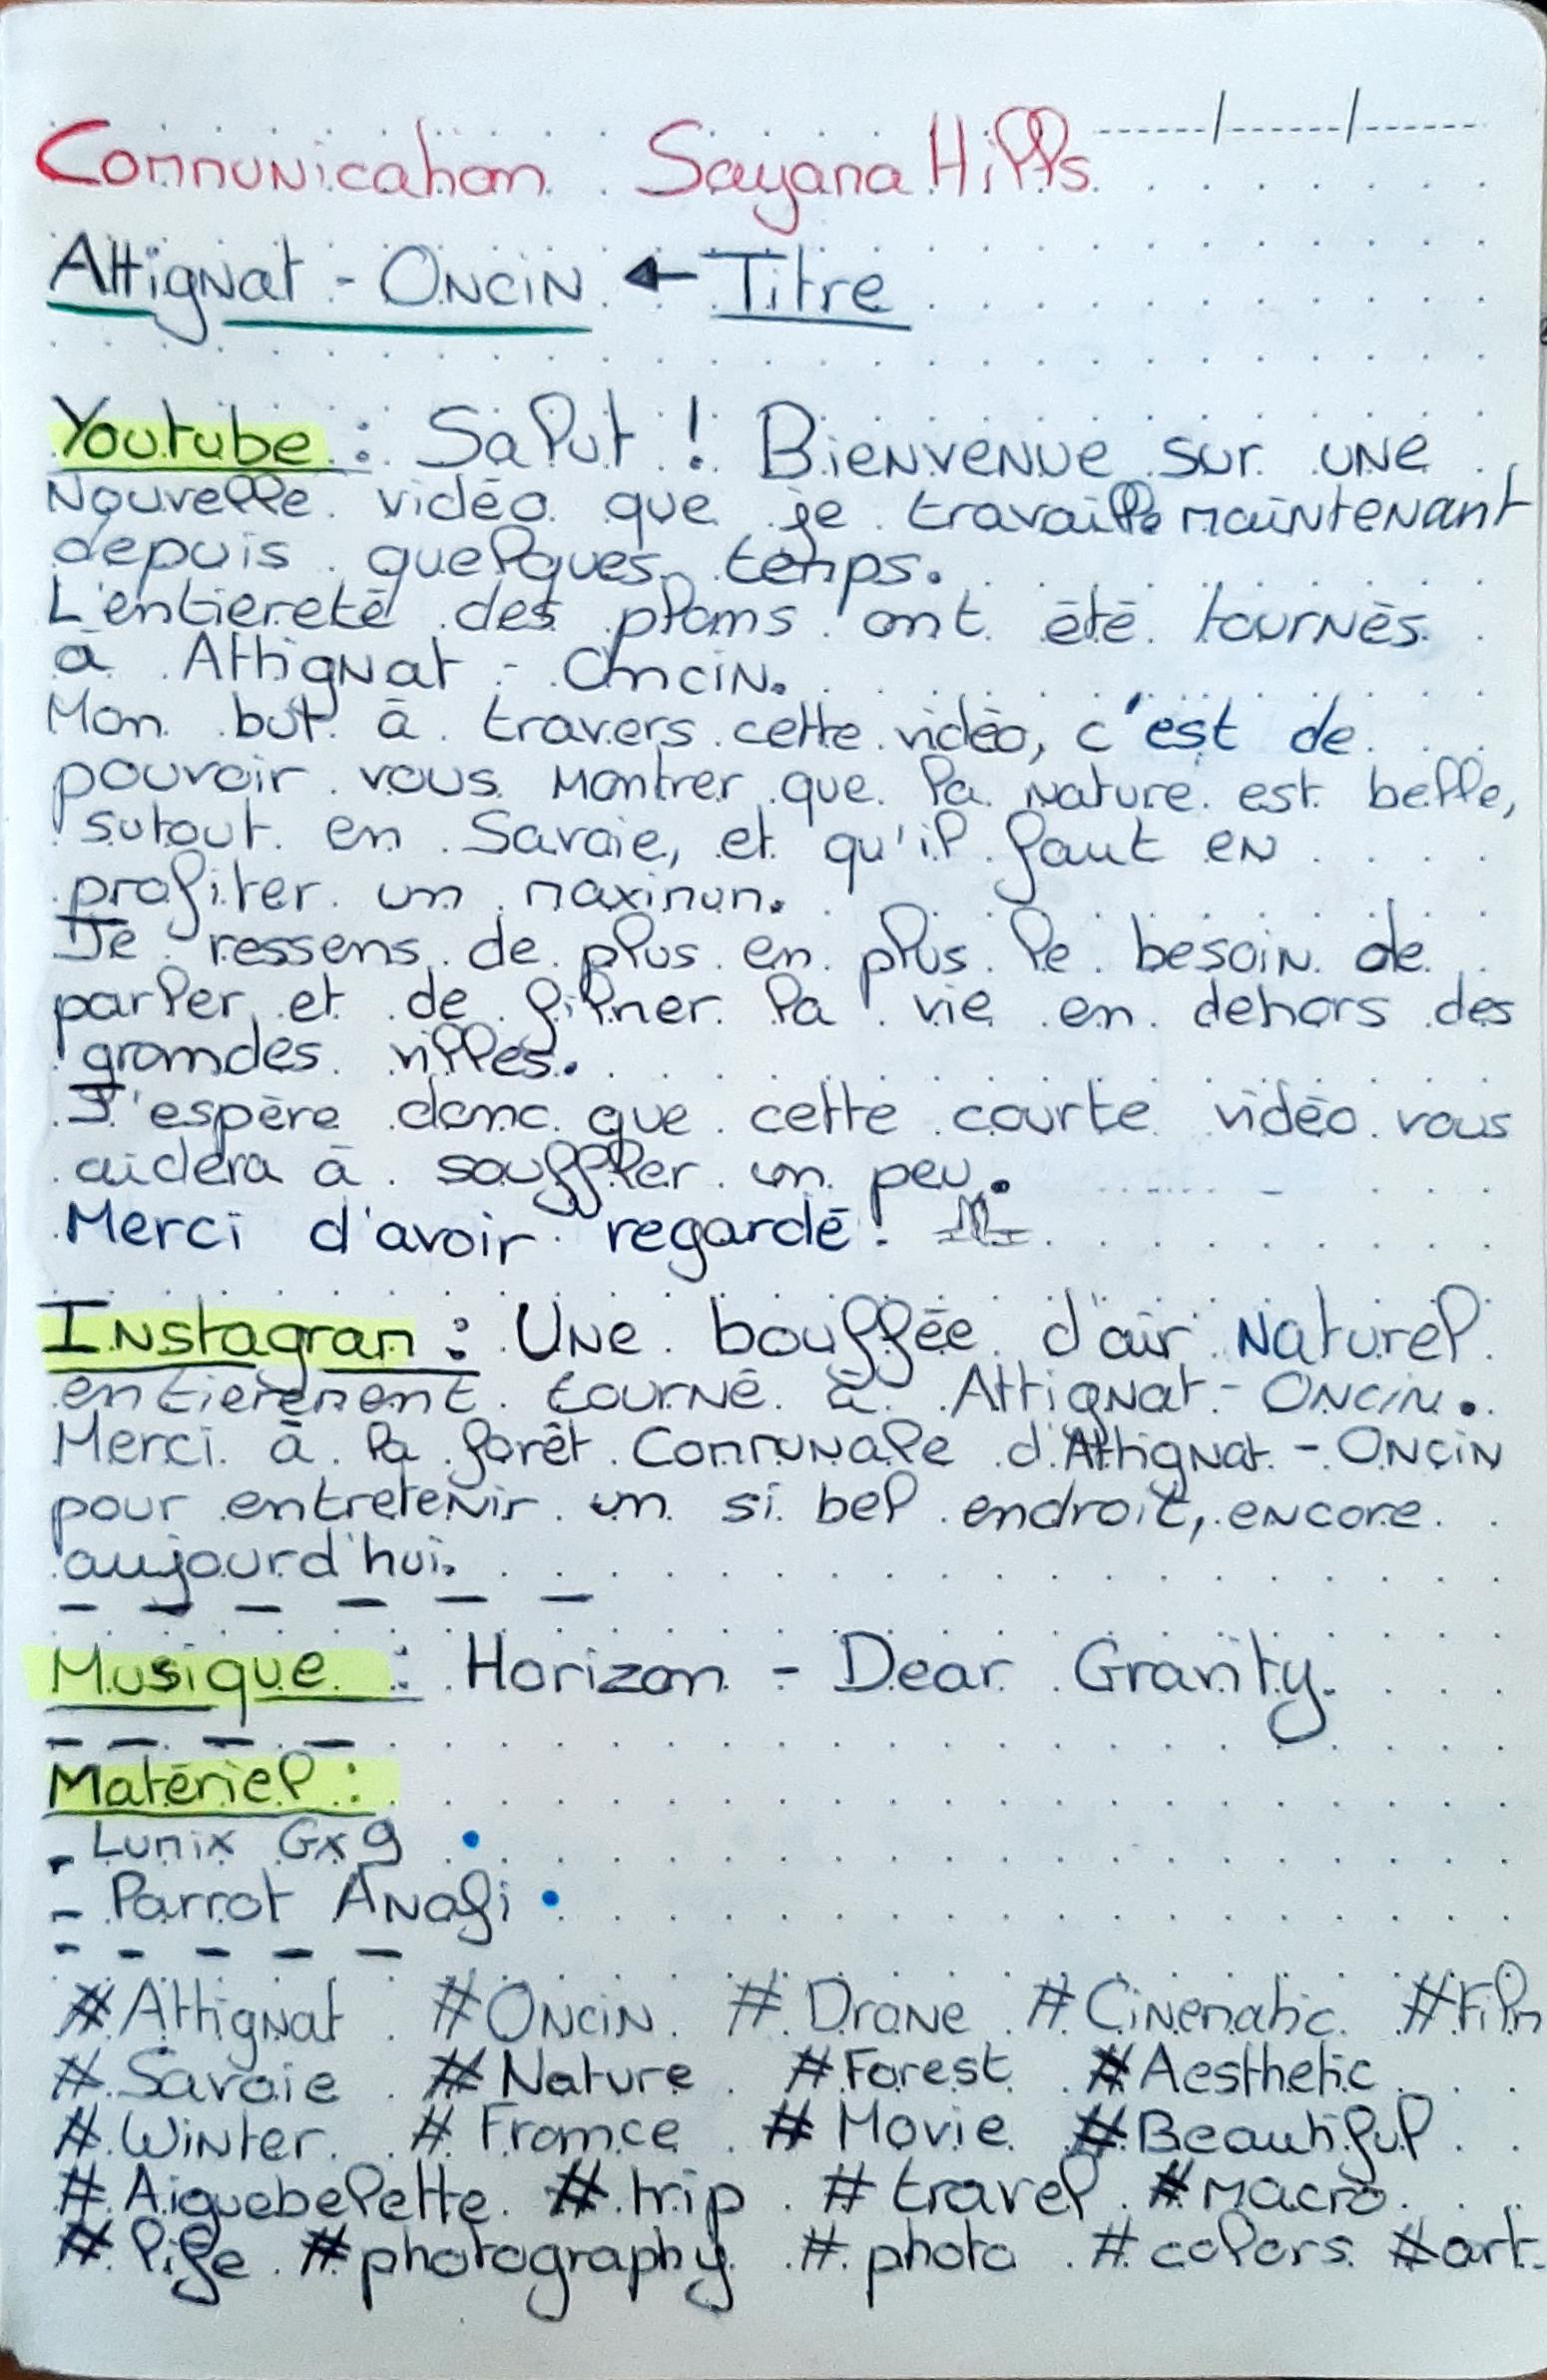 Communication Sayana Hills
Attignat - Oncin ← Titre
Youtube : Salut ! Bienvenue sur une
nouvelle vidéo que je travaille maintenant
depuis quelques temps.
L'entiereté des plans ont été tournés
à Attignat - Oncin.
Mon but à travers cette vidéo, c'est de
pouvoir vous montrer que la nature est belle,
sutout en Savoie, et qu'il faut en
profiter un maximum.
Je ressens de plus en plus le besoin de
parler et de filmer la vie en dehors des
grandes villes.
J'espère donc que cette courte vidéo vous
aidera à souffler un peu.
Merci d'avoir regardé !
Instagram : Une bouffée d'air naturel
entièrement tourné à Attignat - Oncin.
Merci à la forêt Communale d'Attignat - Oncin
pour entretenir un si bel endroit, encore
aujourd'hui.
Musique : Horizon - Dear Gravity.
Matériel :
- Lumix Gx9
- Parrot Anafi
#Attignat #Oncin #Drone #Cinematic #Film
#Savoie #Nature #Forest #Aesthetic
#Winter #France #Movie #Beautiful
#Aiguebelette #trip #travel #macro
#life #photography #photo #colors #art